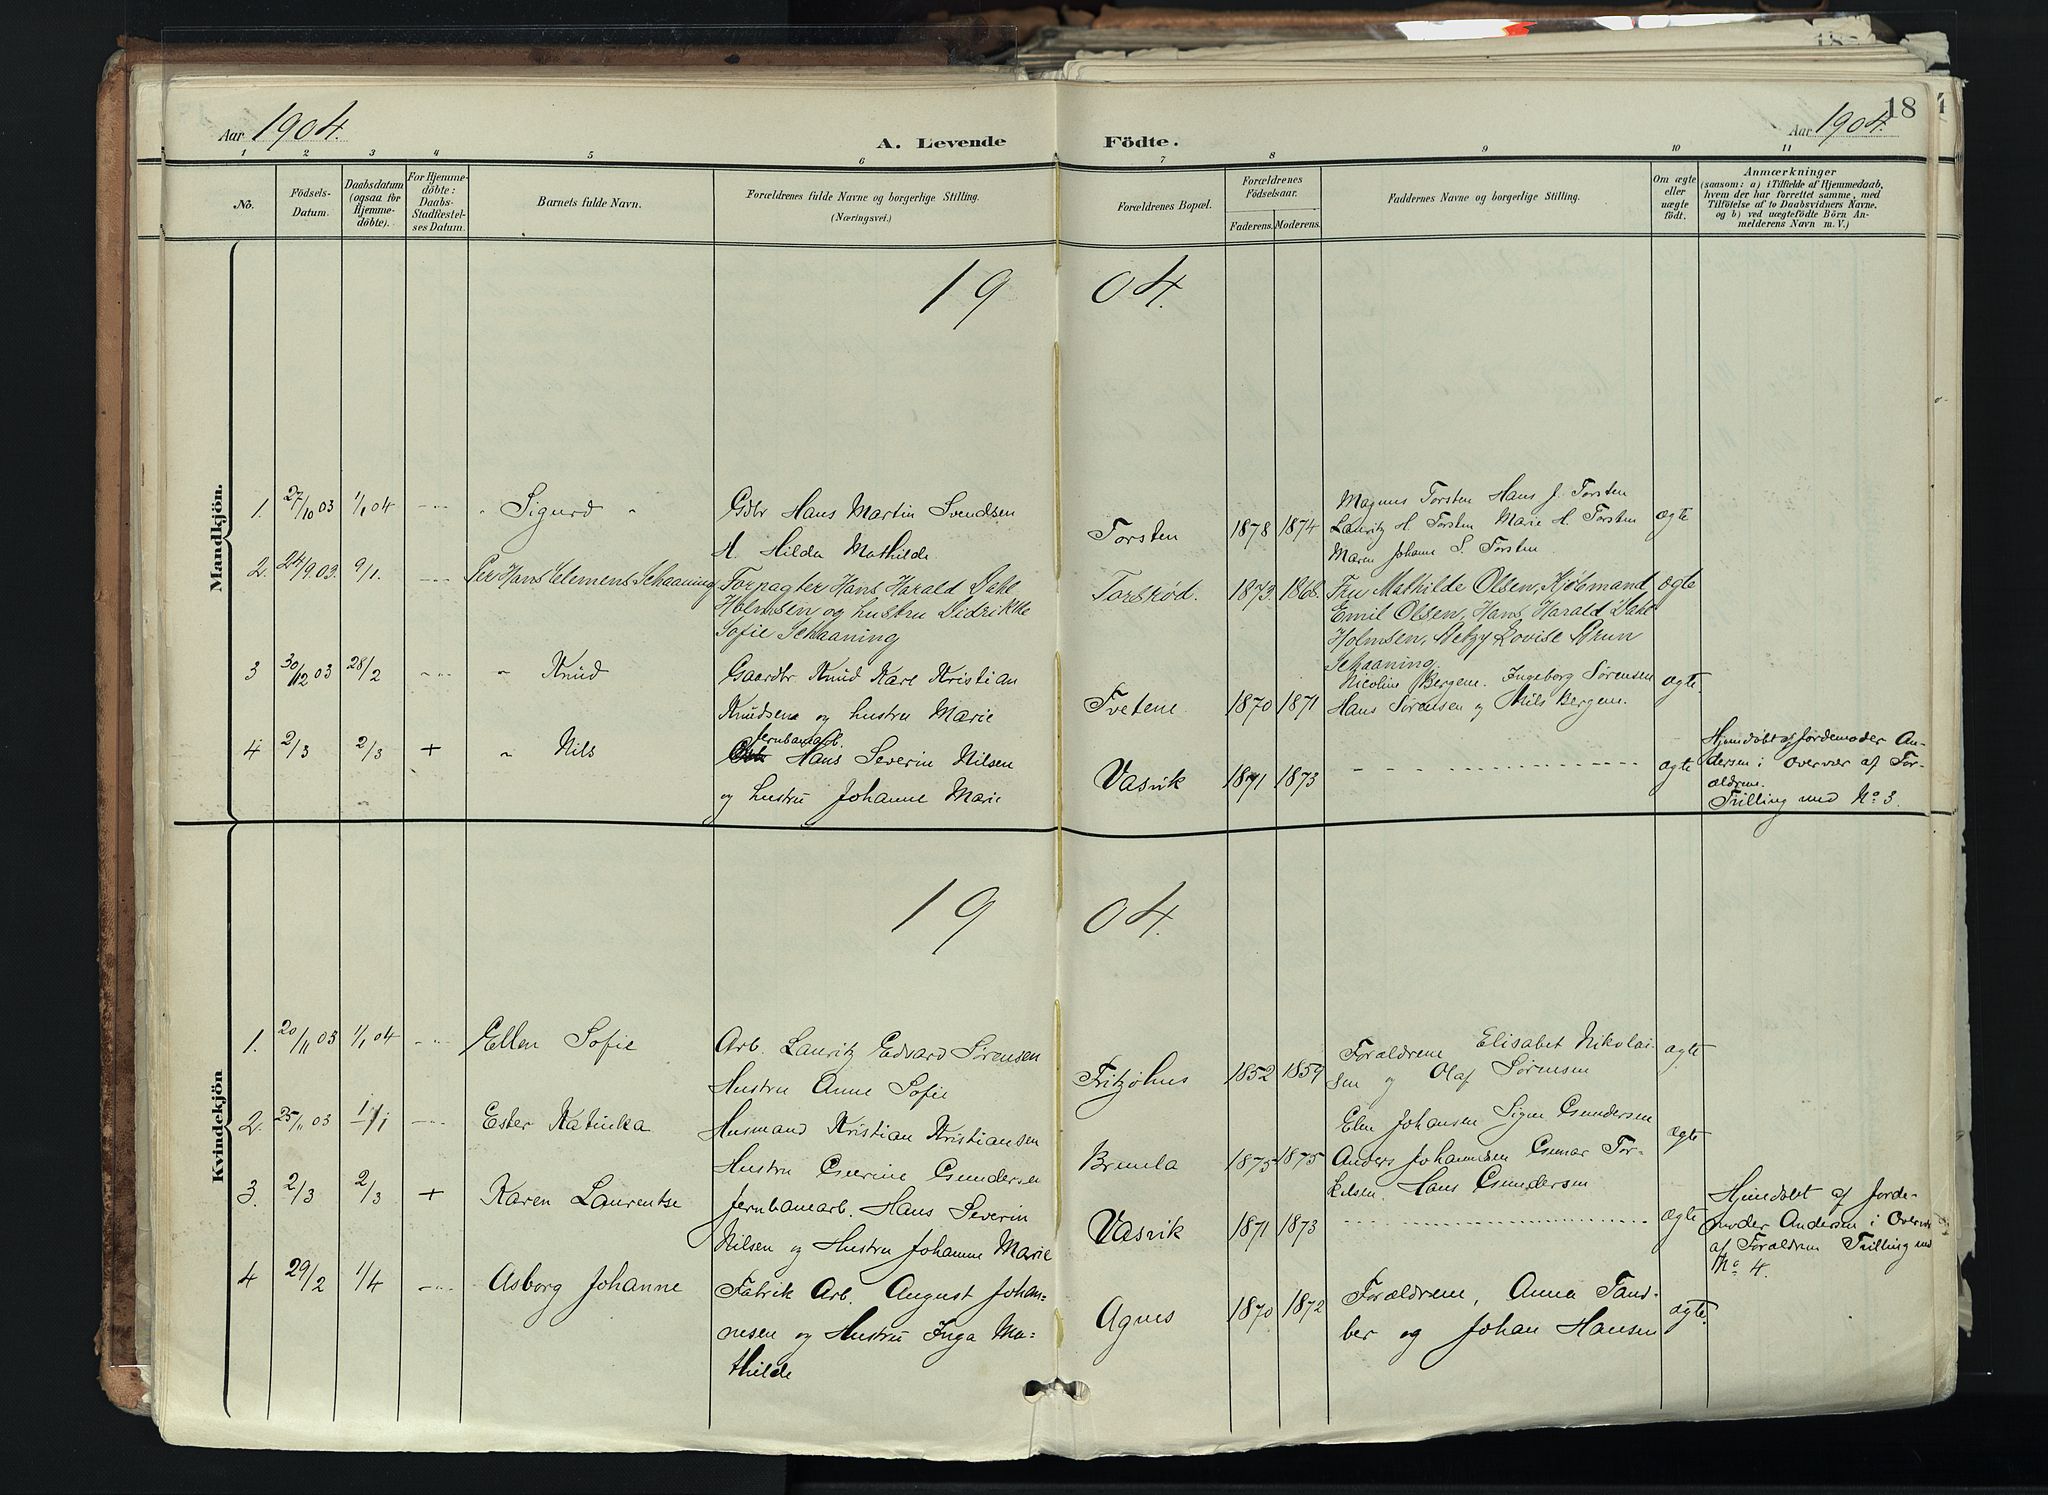 18
Aar 1904.
A. Levende Födte.
Aar 1904.
18
1 2 3 4 5 6 7 8 9 10 11
No.
Födsels-Datum.
Daabsdatum (ogsaa for Hjemme-döbte).
For Hjemme-döbte: Daabs-Stadfæstel-ses Datum.
Barnets fulde Navn.
Forældrenes fulde Navne og borgerlige Stilling.
(Næringsvei.)
Forældrenes Bopæl.
Forældrenes Födselsaar.
Faderens. Moderens.
Faddernes Navne og borgerlige Stilling.
Om ægte eller uægte födt.
Anmærkninger
(saasom: a) i Tilfælde af Hjemmedaab,
hvem der har forrettet samme, med
Tilföielse af to Daabsvidners Navne,
og b) ved uægtefödte Börn An-
melderens Navn m. V.)
Mandkjön.
19 04.
1. 27/10 03 1/1 04 Sigurd
Gdbr Hans Martin Svendsen
H. Hilda Mathilde.
Torsten 1878 1874
Magnus Torsten Hans J. Torsten
Lauritz H. Torsten Marie H. Torsten
Maren Johanne S. Torsten.
ægte
2. 24/9 03. 9/1. Per Hans Clemens Schaaning
Forpagter Hans Harald Dahl
Holmsen og hustru Didrikke
Sofie Schaaning
Torskød. 1873. 1868.
Fru Mathilde Olsen, Kjøbmand
Emil Olsen, Hans Harald Dahl
Holmsen, Betzy Lovise Brun
Schaaning.
ægte
3 30/12 03 28/2 " Knud
Gaardbr. Knud Karl Kristian
Knudsen og hustru Marie
Tvetene 1870 1871
Nicoline Bergene. Ingeborg Sørensen
Hans Sørensen og Nils Bergene.
ægte
4 2/3 2/3 + " Nils
Jernbanearb.
Hans Severin Nilsen
og hustru Johanne Marie
Vasvik 1871 1873
ægte
Hjemdøbt af Jordemoder An-
dersen i Overvær af For-
ældrene.
Trilling med No 3.
Kvindekjön
19 04.
1. 20/11 03 1/1 04 Ellen Sofie
Arb. Lauritz Edvard Sørensen
Hustru Anne Sofie
Fritzøhus 1852 1859
Forældrene Elisabet Nikolai-
sen og Olaf Sørensen
ægte
2. 25/11 03 1/1 Ester Katinka
Husmand Kristian Kristiansen
Hustru Gurine Gundersen
Brunla 1875 1875
Elen Johansen Signe Gundersen
Anders Johannsen Gunnar Tor-
kelsen. Hans Gundersen
ægte
3. 2/3 2/3 + Karen Laurentse
Jernbanearb. Hans Severin
Nilsen og Hustru Johanne Marie
Vasvik 1871 1873
ægte
Hjemdøbt af Jorde-
moder Andersen i Overvær
af Forældrene Trilling med
No 4.
4 29/2 1/4 Asborg Johanne
Fabrik Arb. August Johan-
nesen og Hustru Inga Ma-
thilde
Agnes 1870 1872
Forældrene, Anna Tand-
ber og Johan Hansen
ægte.